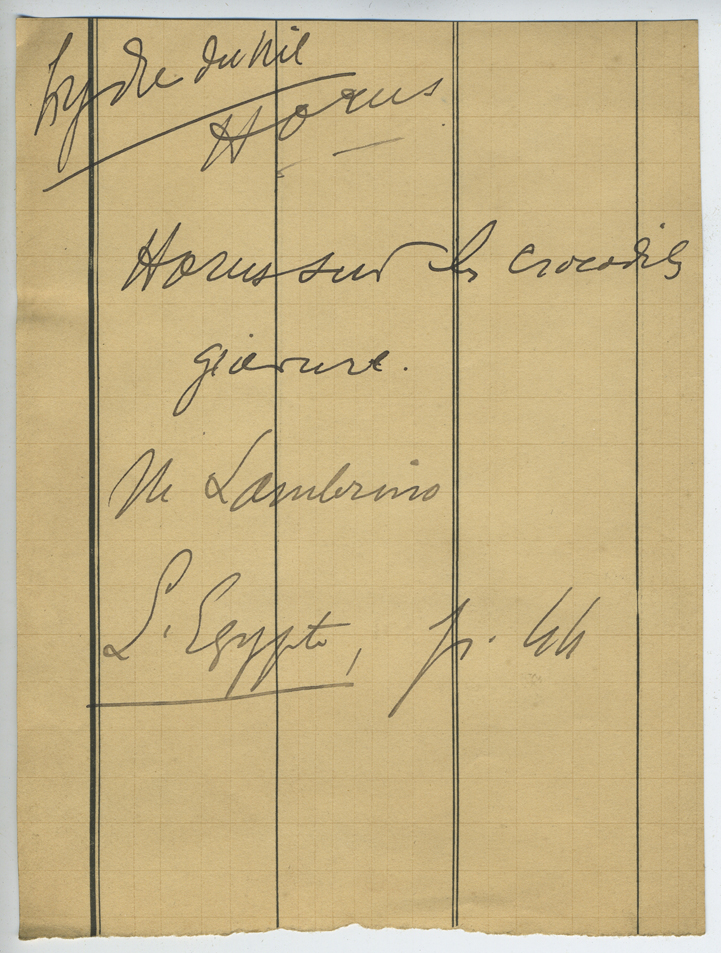 hydre du Nil
Horus
Horus sur les crocodiles
gravure.
M Lambrino
L'Egypte, p. 44